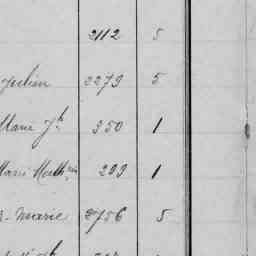 2112 5
Julien 2279 5
Marie Jh 350 1
Marie Math 299 1
Marie 2756 5